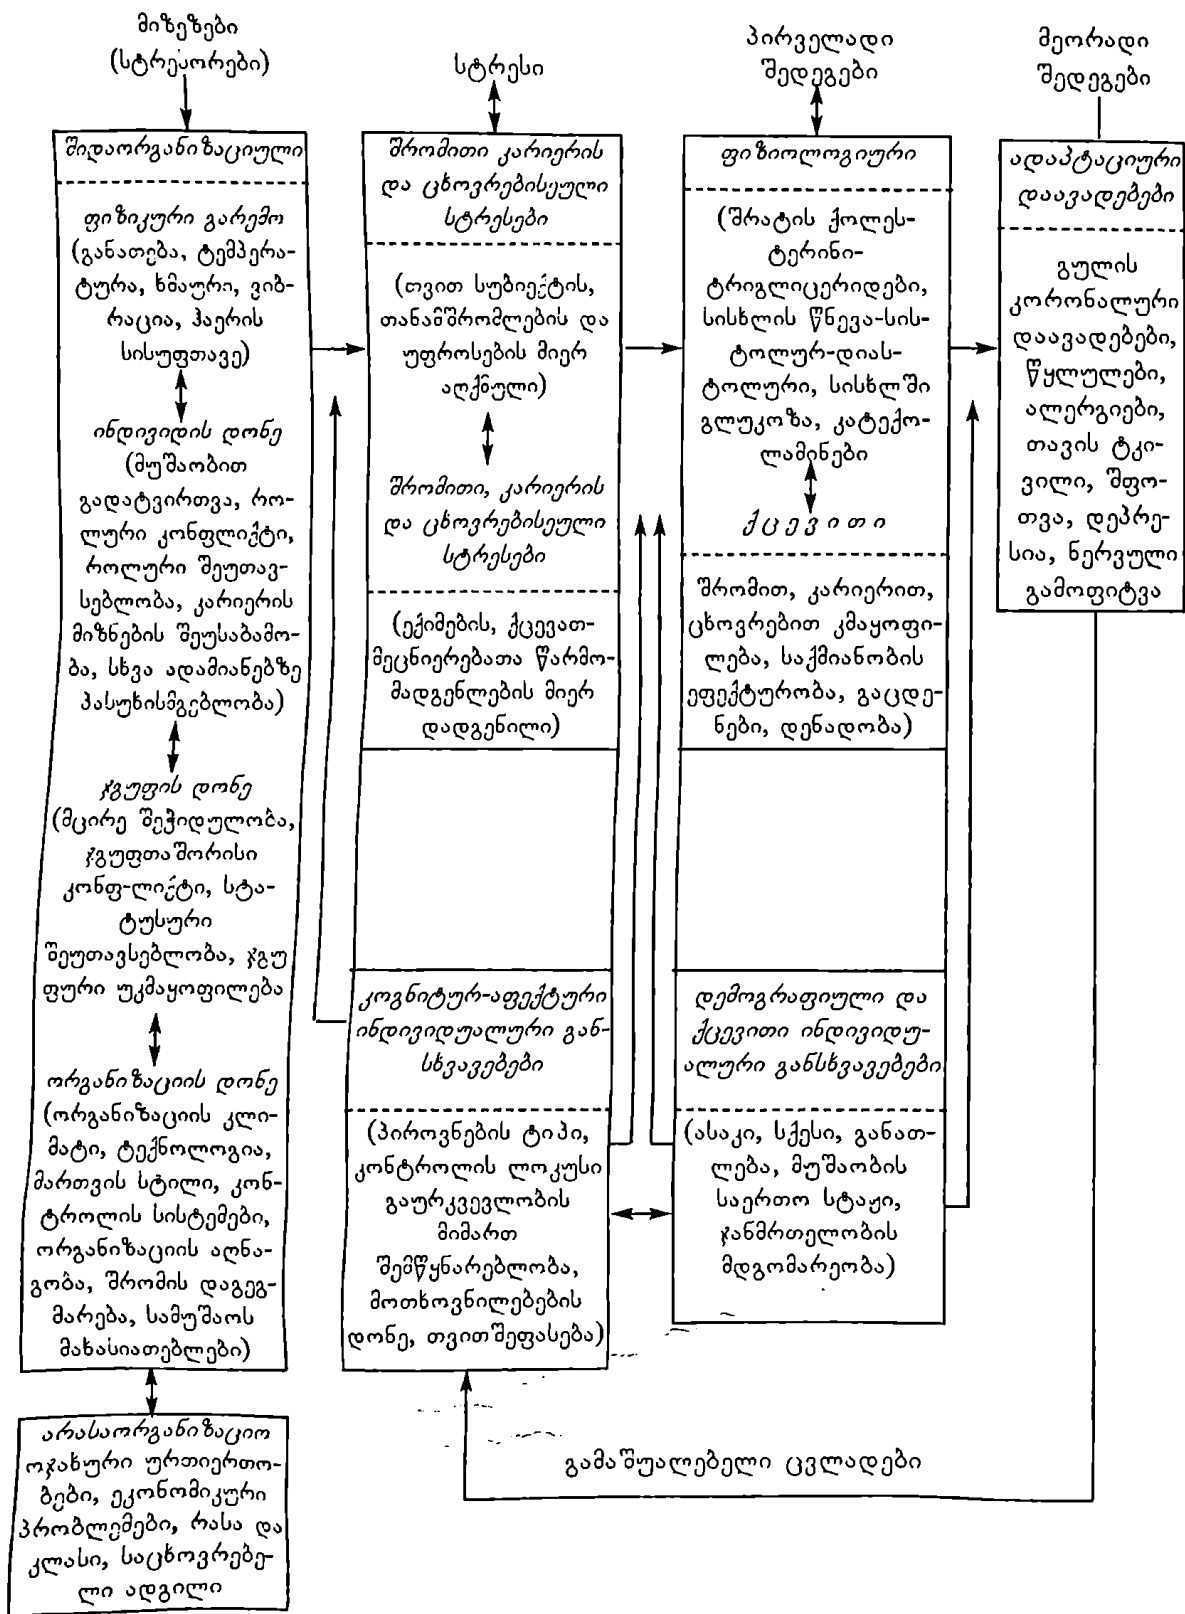 მიზეზები
(სტრესორები)
შიდაორგანიზაციული
ფიზიკური გარემო
(განათება, ტემპერა-
ტურა, ხმაური, ვიბ-
რაცია, ჰაერის
სისუფთავე)
ინდივიდის დონე
(მუშაობით
გადატვირთვა, რო-
ლური კონფლიქტი,
როლური შეუთავ-
სებლობა, კარიერის
მიზნების შეუსაბამო-
ბა, სხვა ადამიანებზე
პასუხისმგებლობა)
ჯგუფის დონე
(მცირე შეჭიდულობა,
ჯგუფთაშორისი
კონფ-ლიქტი, სტა-
ტუსური
შეუთავსებლობა, ჯგუ
ფური უკმაყოფილება
ორგანიზაციის დონე
(ორგანიზაციის კლი-
მატი, ტექნოლოგია,
მართვის სტილი, კონ-
ტროლის სისტემები,
ორგანიზაციის აღნა-
გობა, შრომის დაგეგ-
მარება, სამუშაოს
მახასიათებლები)
არასაორგანიზაციო
ოჯახური ურთიერთო-
ბები, ეკონომიკური
პრობლემები, რასა და
კლასი, საცხოვრებე-
ლი ადგილი
სტრესი
შრომითი კარიერის
და ცხოვრებისეული
სტრესები
(თვით სუბიექტის,
თანამშრომლების და
უფროსების მიერ
აღქმული)
შრომითი, კარიერის
და ცხოვრებისეული
სტრესები
(ექიმების, ქცევათ-
მეცნიერებათა წარმო-
მადგენლების მიერ
დადგენილი)
კოგნიტურ-აფექტური
ინდივიდუალური გან-
სხვავებები
(პიროვნების ტიპი,
კონტროლის ლოკუსი
გაურკვევლობის
მიმართ
შემწყნარებლობა,
მოთხოვნილებების
დონე, თვითშეფასება)
პირველადი
შედეგები
ფიზიოლოგიური
(შრატის ქოლეს-
ტერინი-
ტრიგლიცერიდები,
სისხლის წნევა-სის-
ტოლურ-დიას-
ტოლური, სისხლში
გლუკოზა, კატექო-
ლამინები
ქცევითი
შრომით, კარიერით,
ცხოვრებით კმაყოფი-
ლება, საქმიანობის
ეფექტურობა, გაცდე-
ნები, დენადობა)
დემოგრაფიული და
ქცევითი ინდივიდუ-
ალური განსხვავებები
(ასაკი, სქესი, განათ-
ლება, მუშაობის
საერთო სტაჟი,
ჯანმრთელობის
მდგომარეობა)
მეორადი
შედეგები
ადაპტაციური
დაავადებები
გულის
კორონალური
დაავადებები,
წყლულები,
ალერგიები,
თავის ტკი-
ვილი, შფო-
თვა, დეპრე-
სია, ნერვული
გამოფიტვა
გამაშუალებელი ცვლადები